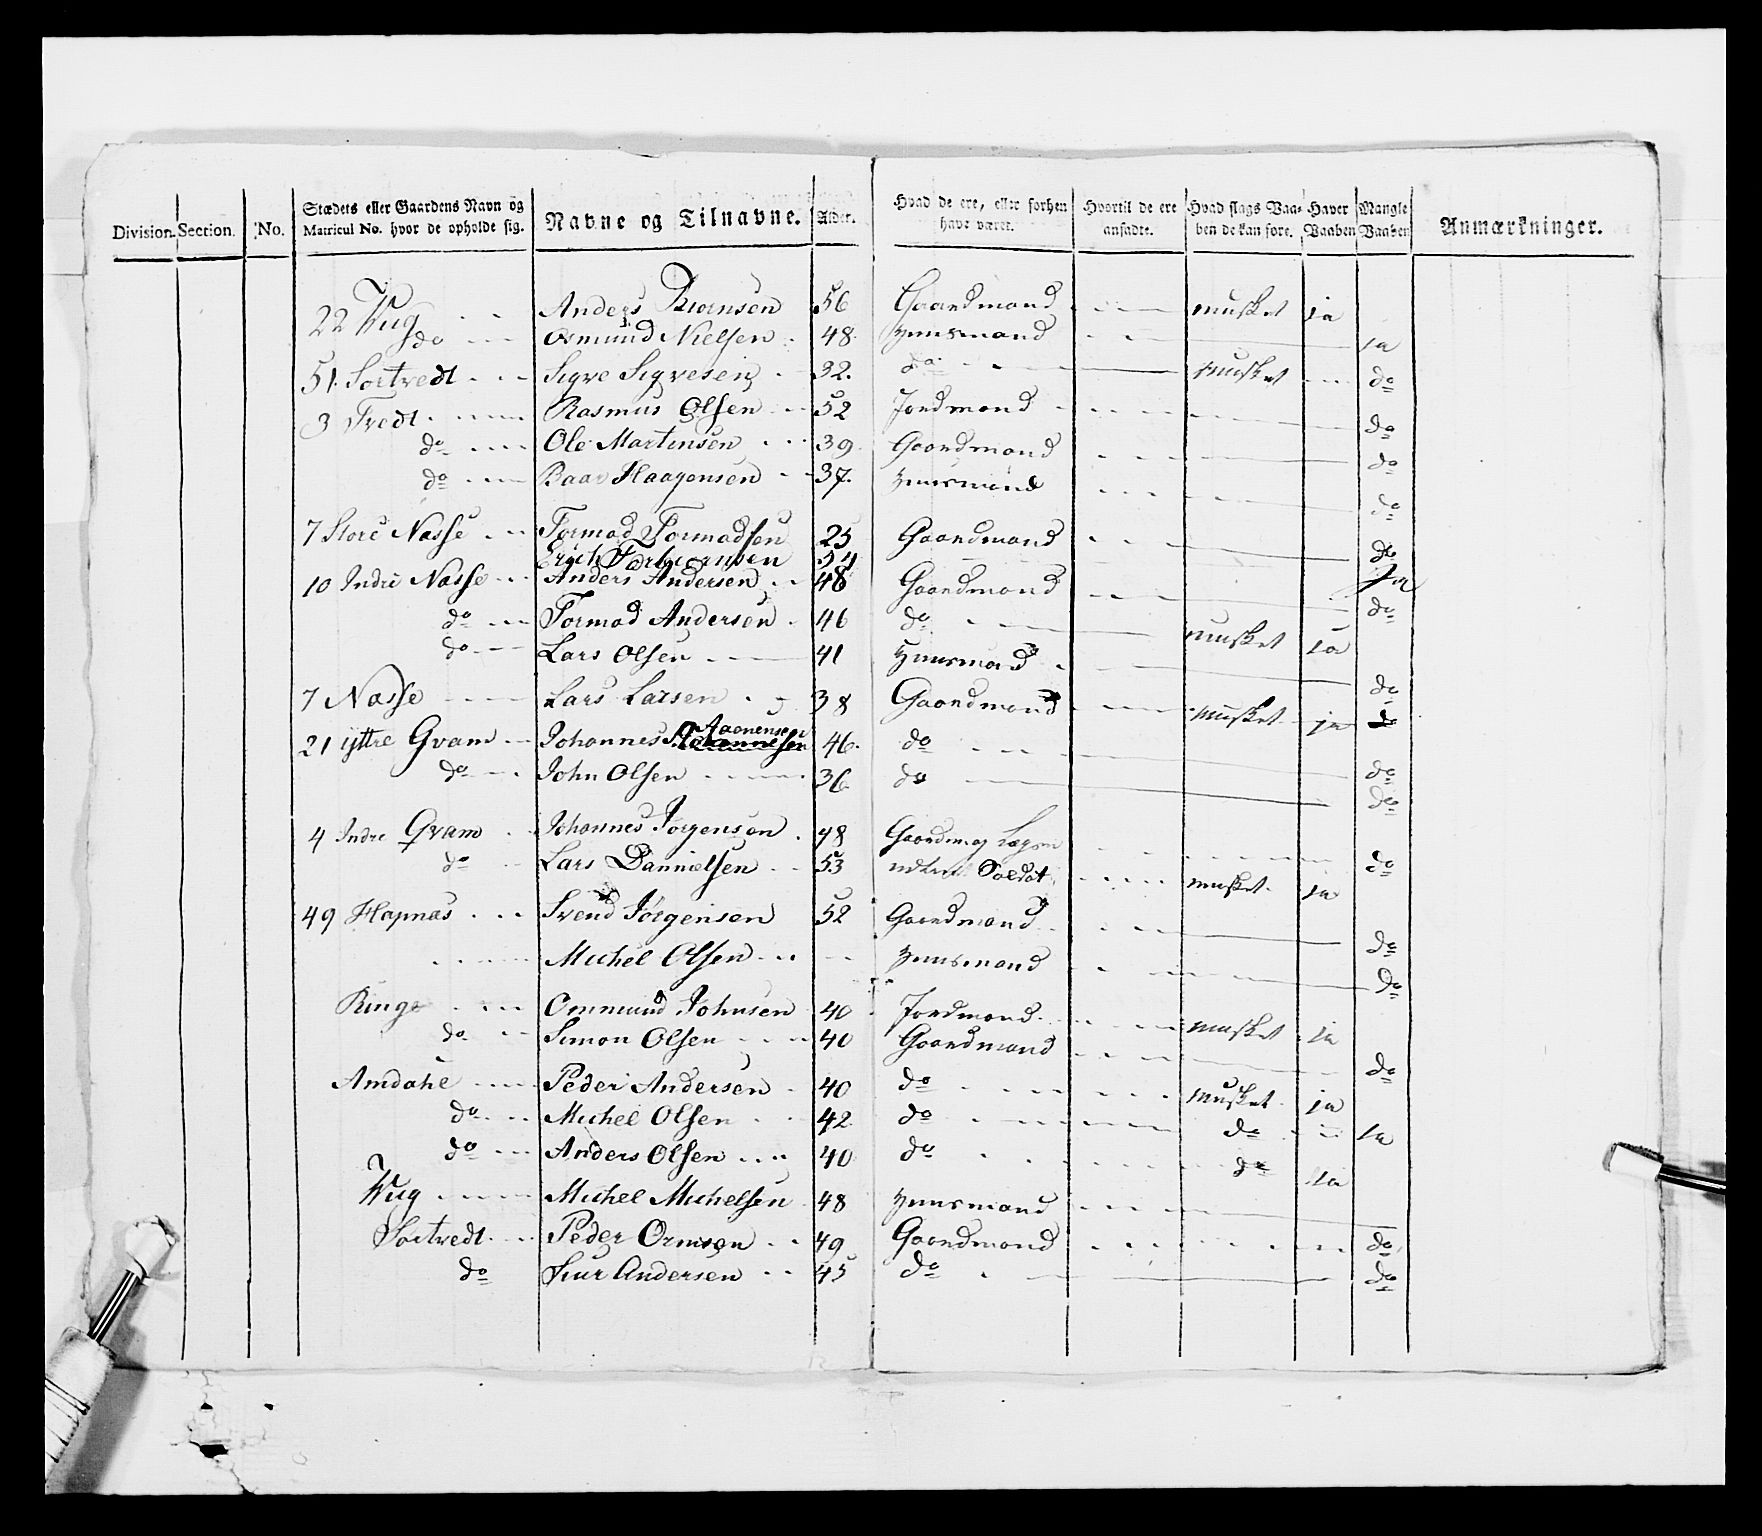 Division. Section. No. Stædets eller Gaardens Navn og Matricul No. hvor de opholde sig. Navne og Tilnavne. Alder. Hvad de ere, eller forhen have været. Hvortil de ere ansadte. Hvad slags Vaaben de kan føre. Haver Vaaben Mangle Vaaben Anmærkninger.
22 Vug Anders Biørnsen 56 Gaardmand musket ja
do Osmund Nielsen 48 Huusmand ja
51. Sortvedt Sigve Sigvesen 32. do musket do
3 Tvedt Rasmus Olsen 52 Jordmand do
do Ole Martinsen 39 Gaardmand do
do Baar Haagensen 37. Huusmand do
7 Store Nasse Tormod Tormodsen 25 Gaardmand do
Erich Torbiørnsen 54 Ja
10 Indre Nasse Anders Andersen 48 Gaardmand do
do Tormod Andersen 46 do musket ja
do Lars Olsen 41 Huusmand do
7 Nasse Lars Larsen 38 Gaardmand musket ja do
21 yttre Qvam Johannes Johannesen Aanensen 46. do do
do John Olsen 36 do do
4 Indre Qvam Johannes Jørgensen 48 Gaardm og do
do Lars Dannielsen 53 Soldat musket ja
49 Hapnæs Svend Jørgensen 52 Gaardmand do
Michel Olsen Huusmand do
Ringe Ommund Johnsen 40 Jordmand musket ja
do Simon Olsen 40 Gaardmand do
Amdahl Peder Andersen 40 do musket ja
do Michel Olsen 42 do do ja
do Anders Olsen 40 do do ja
Vug Michel Michelsen 48 Huusmand
Sortvedt Peder Ormsen 49 Gaardmand do
do Siur Andersen 45 do do